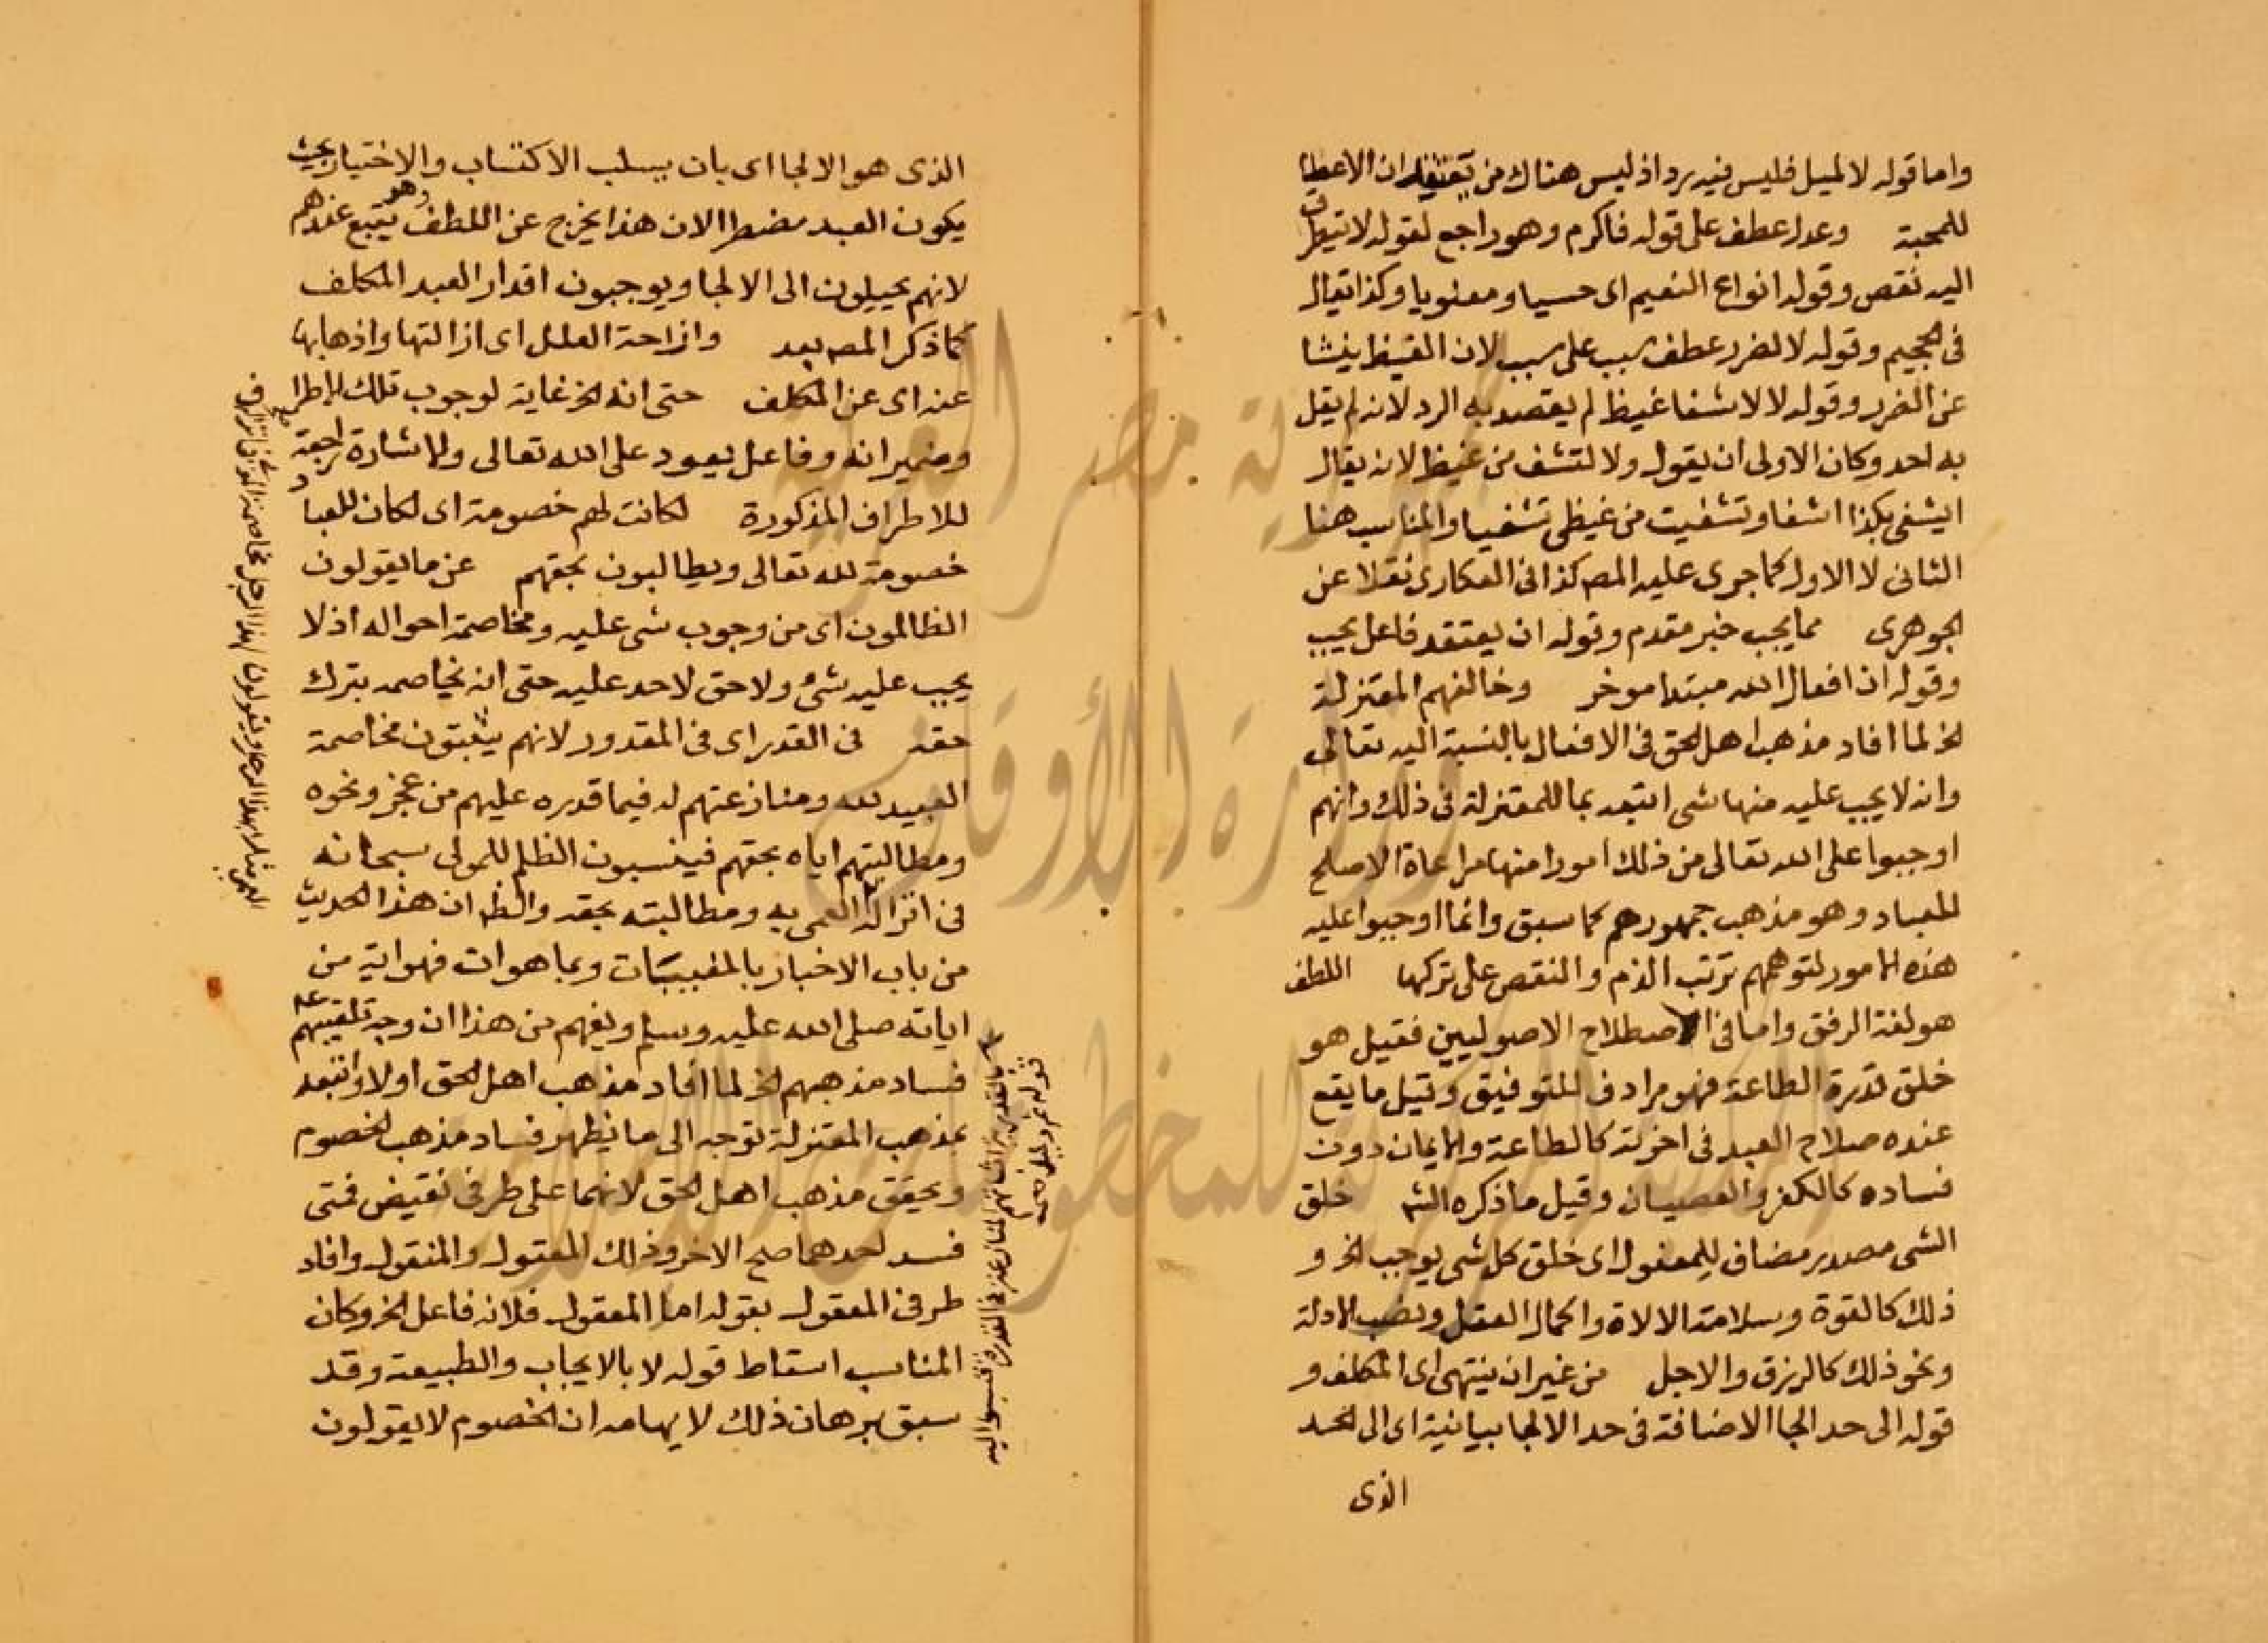 واما قوله لا لميل فليس فيه رد اذ ليس هناك من يعتقد ان الاعطا
للمحبة وعدل عطف على قوله فاكرم وهو راجع لقوله لا يتطرق
اليه نقص وقوله انواع النعيم اى حسيا ومعنويا وكذا يقال
فى الجحيم وقوله لا لضرر عطف سبب على سبب لان الغيظ ينشا
عن الضرر وقوله لا لاشفا غيظ لم يقصد به الرد لانه لم يقل
به احد وكان الاولى ان يقول ولا لتشف من غيظ لانه يقال
ايشفى بكذا اشفا وتشفيت من غيظى تشفيا والمناسب هنا
الثانى لا الاول كما جرى عليه المص كذا فى العكارى نقلا عن
الجوهرى مما يجب خبر مقدم وقوله ان يعتقد فاعل يجب
وقوله ان افعال الله مبتدا موخر وخالفهم المعتزلة
الخ لما افاد مذهب اهل الحق فى الافعال بالنسبة اليه تعالى
وانه لا يجب عليه منها شى اتبعه بما للمعتزلة فى ذلك وانهم
اوجبوا على الله تعالى من ذلك امورا منها مراعاة الاصلح
للعباد وهو مذهب جمهورهم كما سبق وانما اوجبوا عليه
هذه الامور لتوهمهم ترتب الذم والنقص على تركها اللطف
هو لغة الرفق واما فى الاصطلاح الاصوليين فقيل هو
خلق قدرة الطاعة فهو مرادف للتوفيق وقيل ما يقع
عنده صلاح العبد فى اخرته كالطاعة والايمان دون
فساده كالكفر والعصيان وقيل ما ذكره الش خلق
الشى مصدر مضاف للمفعول اى خلق كل شى يوجب الخ و
ذلك كالقوة وسلامة الالاة واكمال العقل ونصب الادلة
ونحو ذلك كالرزق والاجل من غير ان ينتهى اى المكلف و
قوله الى حد الجا الاضافة فى حد الالجا بيانية اى الى الحد
الذى
الذى هو الالجا اى بان يسلب الاكتساب والاختيار بحيث
يكون العبد مضطرا لان هذا يخرج عن اللطف وهو يقبح عندهم
لانهم يحيلون الى الالجا ويوجبون اقدار العبد المكلف
كما ذكر المص بعد وازاحة العلل اى ازالتها واذهابها
عنه اى عن المكلف حتى انه الخ غاية لوجوب تلك الاطرا
وضمير انه وفاعل يعود على الله تعالى والاشارة راجعة
للاطراف المذكورة لكانت لهم خصومة اى لكان للعباد
خصومة لله تعالى ويطالبون بحقهم عن ما يقولون
الظالمون اى من وجوب شى عليه ومخاصمة احواله اذ لا
يجب عليه شئ ولا حق لاحد عليه حتى انه يخاصمه بترك
حقه فى القدر اى فى المقدور لانهم يثبتون مخاصمة
العبيد لله ومنازعتهم له فيما قدره عليهم من عجز ونحوه
ومطالبتهم اياه بحقهم فينسبون الظلم للمولى سبحانه
فى انزاله العمى به ومطالبته بحقه والظ ان هذا الحديث
من باب الاخبار بالمغيبات وبما هوات فهو اية من
اياته صلى الله عليه وسلم ويفهم من هذا ان وجه تلقيبهم
فساد مذهبهم الخ لما افاد مذهب اهل الحق اولا واتبعه
بمذهب المعتزلة توجه الى ما يظهر فساد مذهب الخصوم
ويحقق مذهب اهل الحق لانهما على طرفى نقيض فمتى
فسد احدهما صلح الاخر وذلك المعقول والمنقول وافاد
طرفى المعقول بقوله اما المعقول فلانه فاعل الخ وكان
المناسب اسقاط قوله لا بالايجاب والطبيعة وقد
سبق برهان ذلك لايهامه ان الخصوم لا يقولون